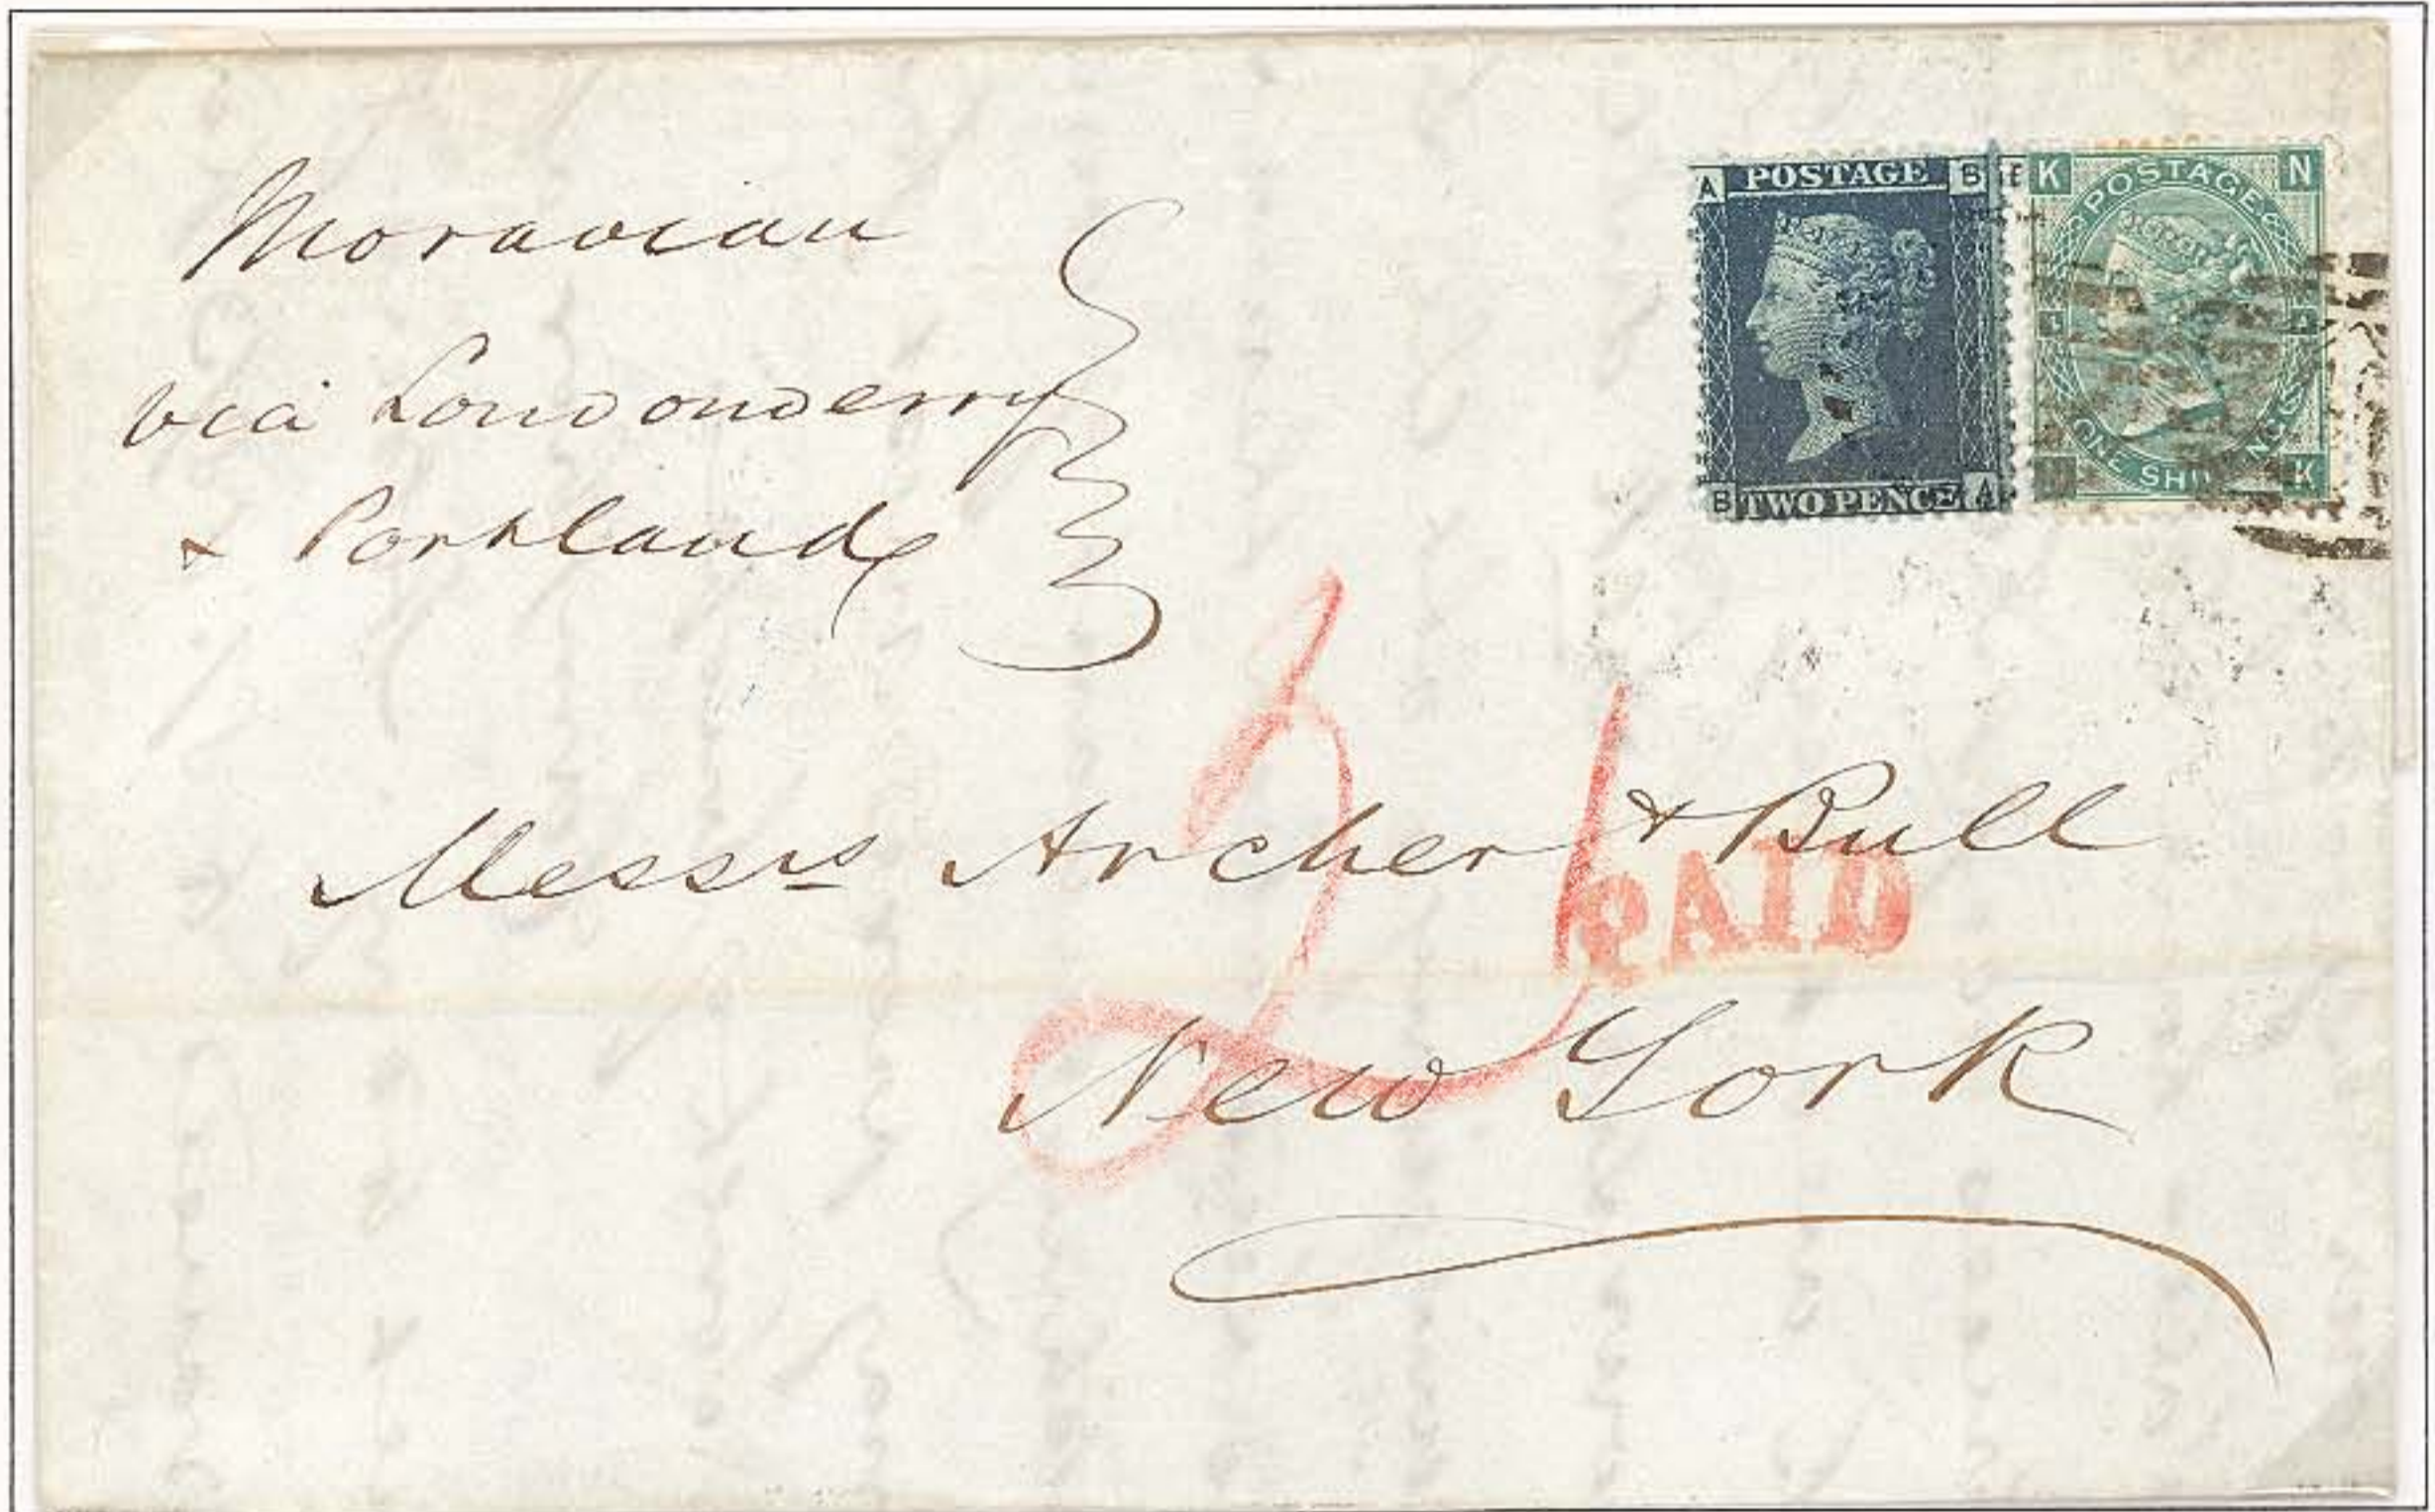 Moravian
via Londonderry
& Portland
A POSTAGE B
B TWO PENCE A
K POSTAGE N
K
21
PAID
Messrs Archer & Bull
New York